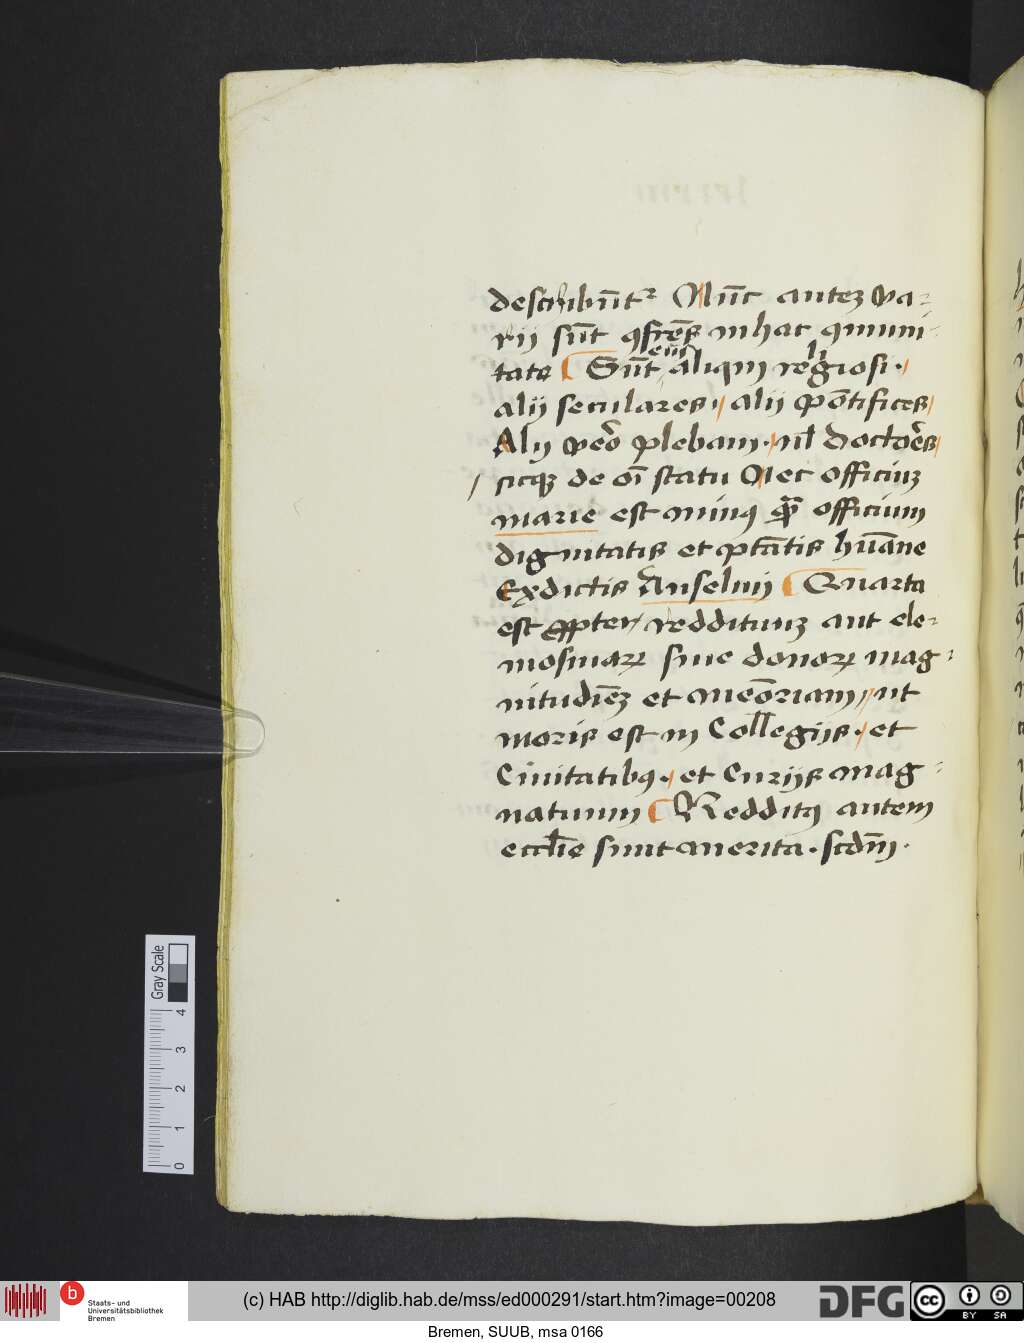 describūtr Nūc autez va-
rij sūt ꝯfrēs in hac ꝯmuni-
tate Sūt eni aliqui religiosi.
alij seculares. alij pōtifices
Alij vero plebani. nil doctores
sicqꝫ de oī statu Nec officiuz
marie est minꝰ qᷓ officium
dignitatis et ptātis hūane
Ex dictis Anselmi Quarta
est ꝓpter reddituum aut ele-
mosinaꝝ siue donoꝝ mag-
nitudīez et meōriam, ut
moris est in Collegijs. et
Ciuitatibꝰ. et Curijs mag-
natuum Redditꝰ autem
eccl̄ie sunt merita. scdm̄
Gray Scale
4
3
2
1
0
b
Staats- und
Universitätsbibliothek
Bremen
(c) HAB http://diglib.hab.de/mss/ed000291/start.htm?image=00208
DFG
cc BY SA
Bremen, SUUB, msa 0166